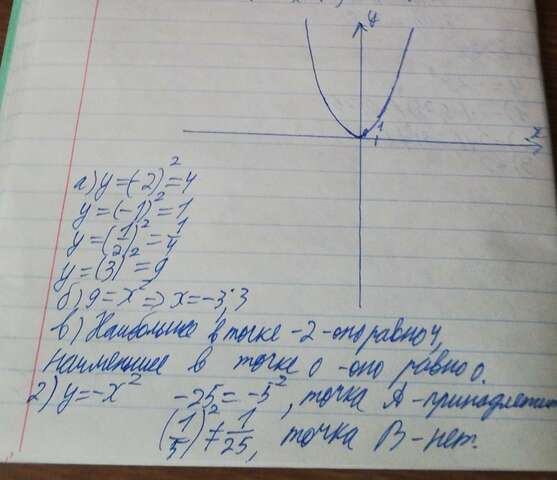 y
x
1
1
а) y = (-2)² = 4
y = (-1)² = 1
y = (1/2)² = 1/4
y = (3)² = 9
б) 9 = x² => x = -3; 3
в) Наибольшее в точке -2 - оно равно 4,
наименьшее в точке 0 - оно равно 0.
2) y = -x² -25 = -5², точка А - принадлежит
(1/5)² ≠ 1/25, точка В - нет.